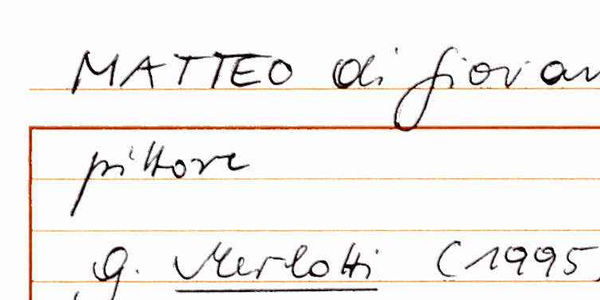 MATTEO di Giovan
pittore
G. Merlotti (1995)